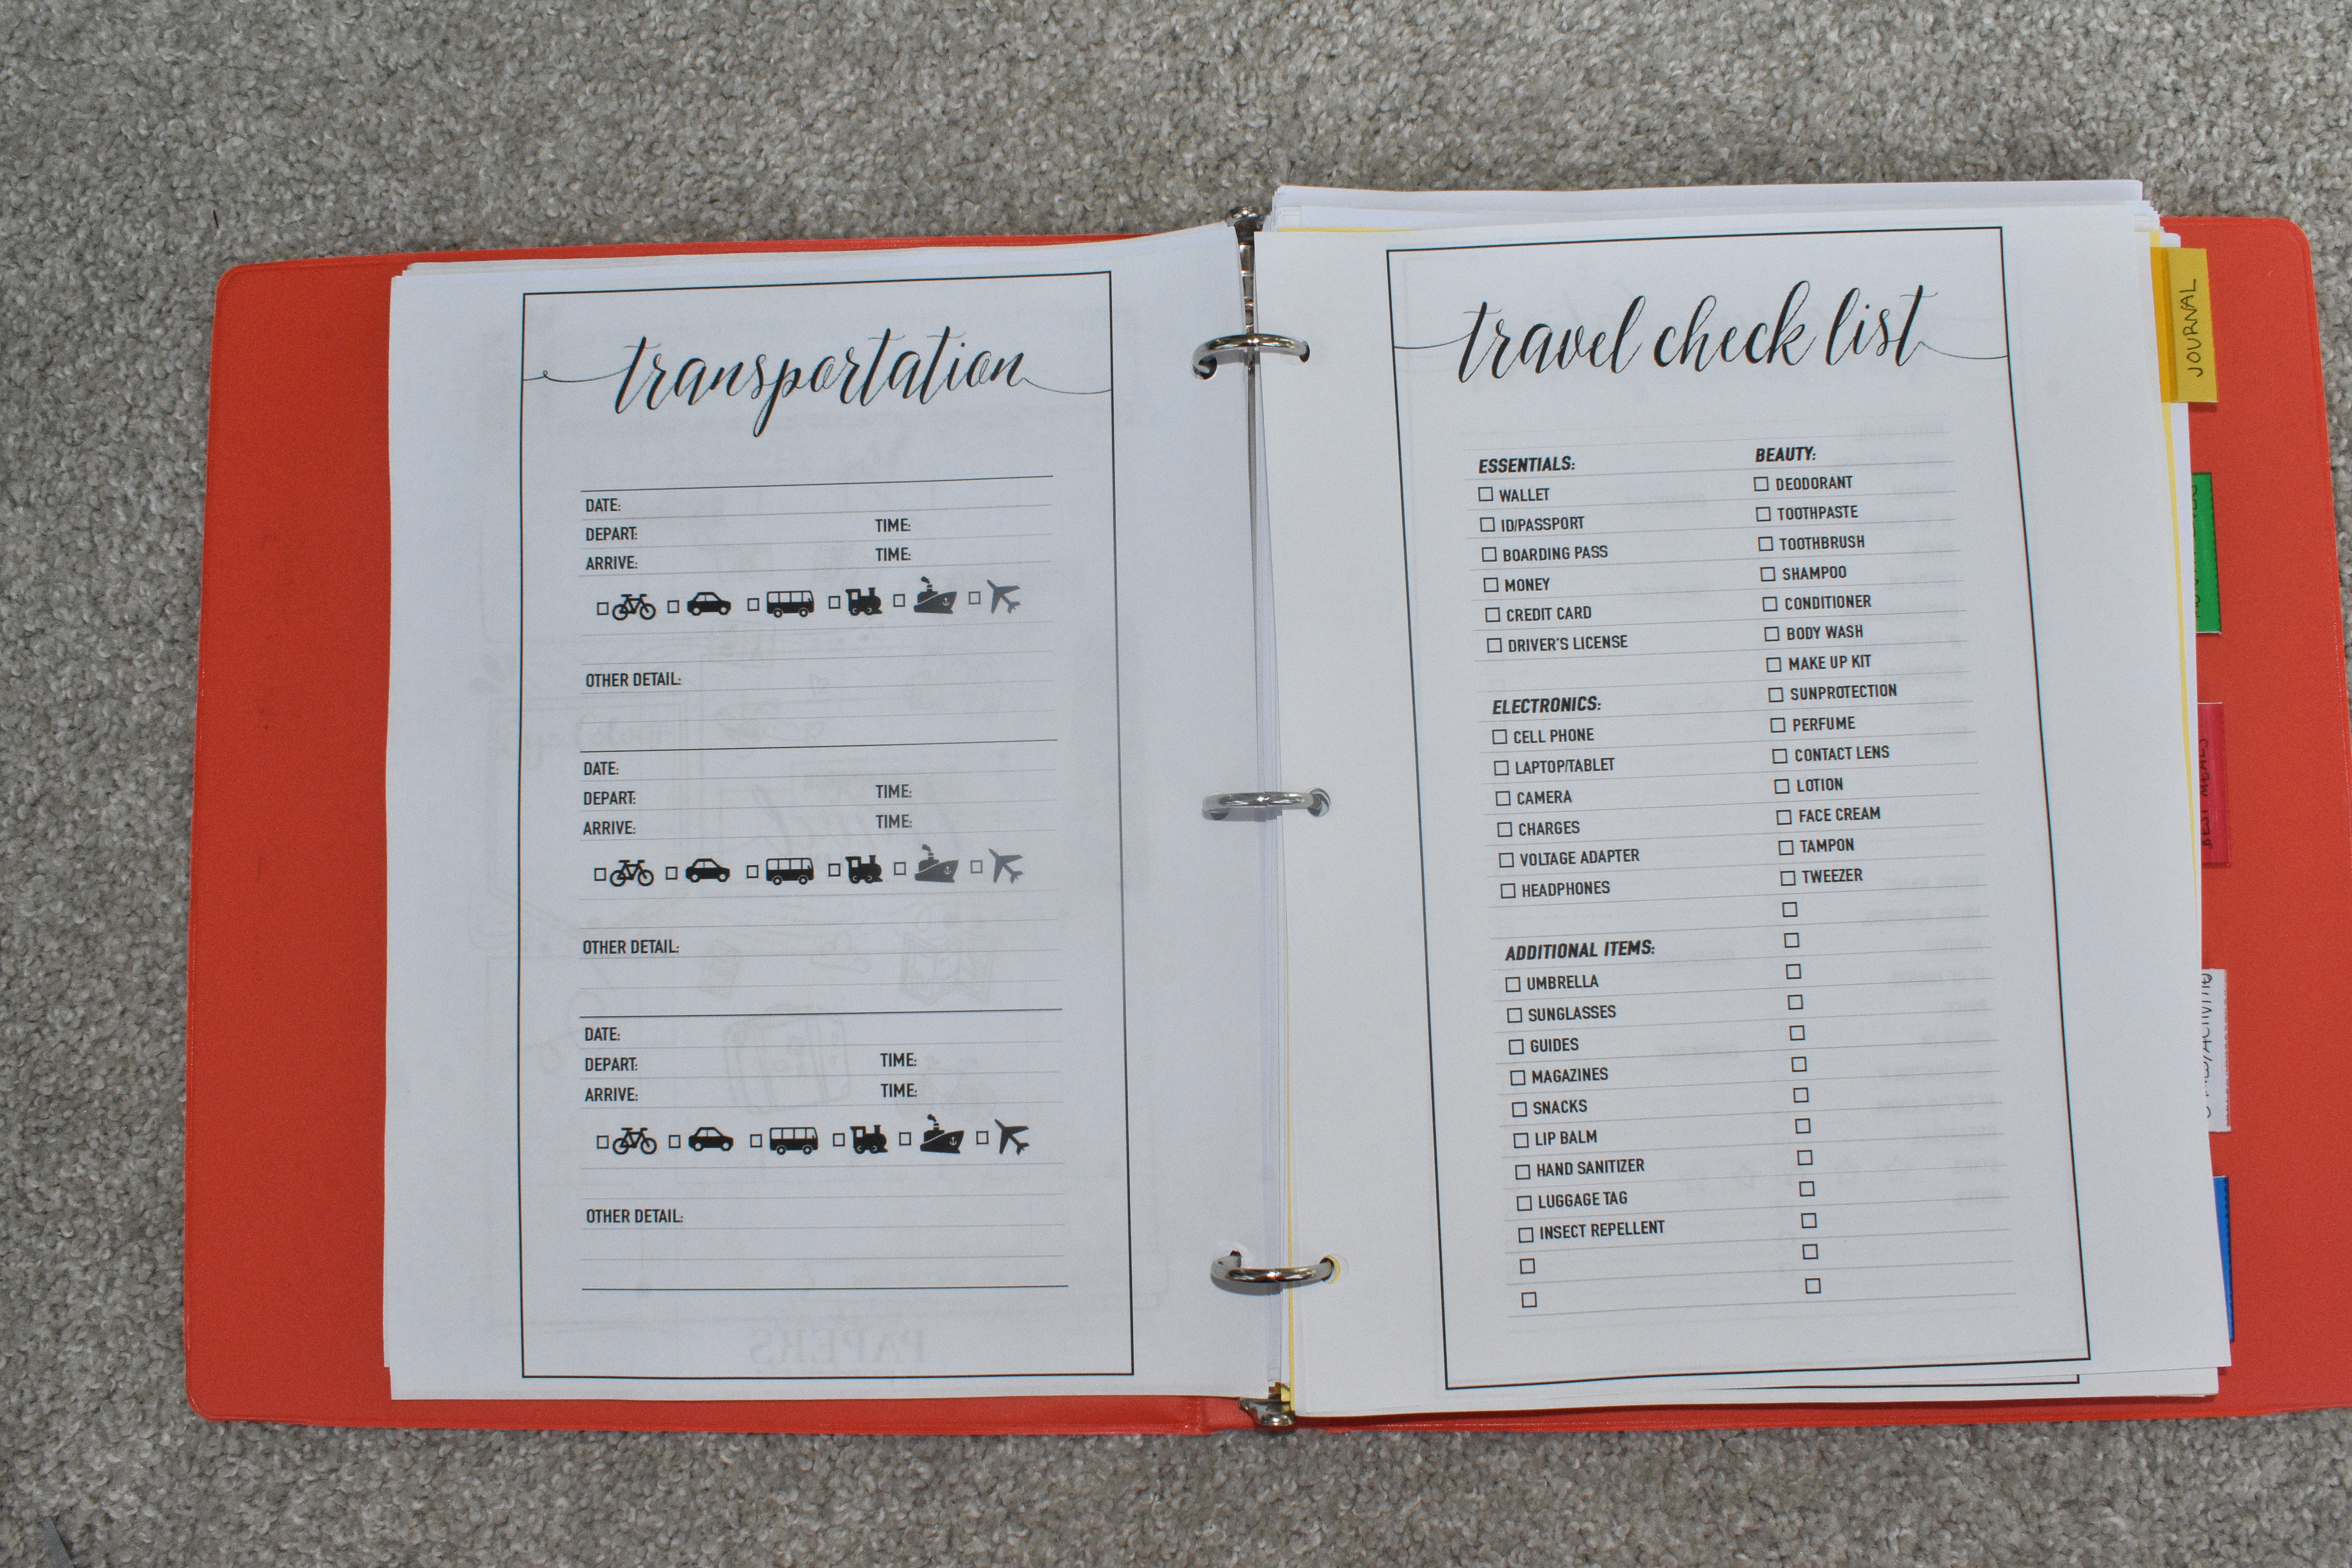 transportation
DATE:
DEPART: TIME:
ARRIVE: TIME:
OTHER DETAIL:
DATE:
DEPART: TIME:
ARRIVE: TIME:
OTHER DETAIL:
DATE:
DEPART: TIME:
ARRIVE: TIME:
OTHER DETAIL:
PAPERS
travel check list
ESSENTIALS:
WALLET
ID/PASSPORT
BOARDING PASS
MONEY
CREDIT CARD
DRIVER'S LICENSE
ELECTRONICS:
CELL PHONE
LAPTOP/TABLET
CAMERA
CHARGES
VOLTAGE ADAPTER
HEADPHONES
ADDITIONAL ITEMS:
UMBRELLA
SUNGLASSES
GUIDES
MAGAZINES
SNACKS
LIP BALM
HAND SANITIZER
LUGGAGE TAG
INSECT REPELLENT
BEAUTY:
DEODORANT
TOOTHPASTE
TOOTHBRUSH
SHAMPOO
CONDITIONER
BODY WASH
MAKE UP KIT
SUNPROTECTION
PERFUME
CONTACT LENS
LOTION
FACE CREAM
TAMPON
TWEEZER
JOURNAL
BEST MEALS